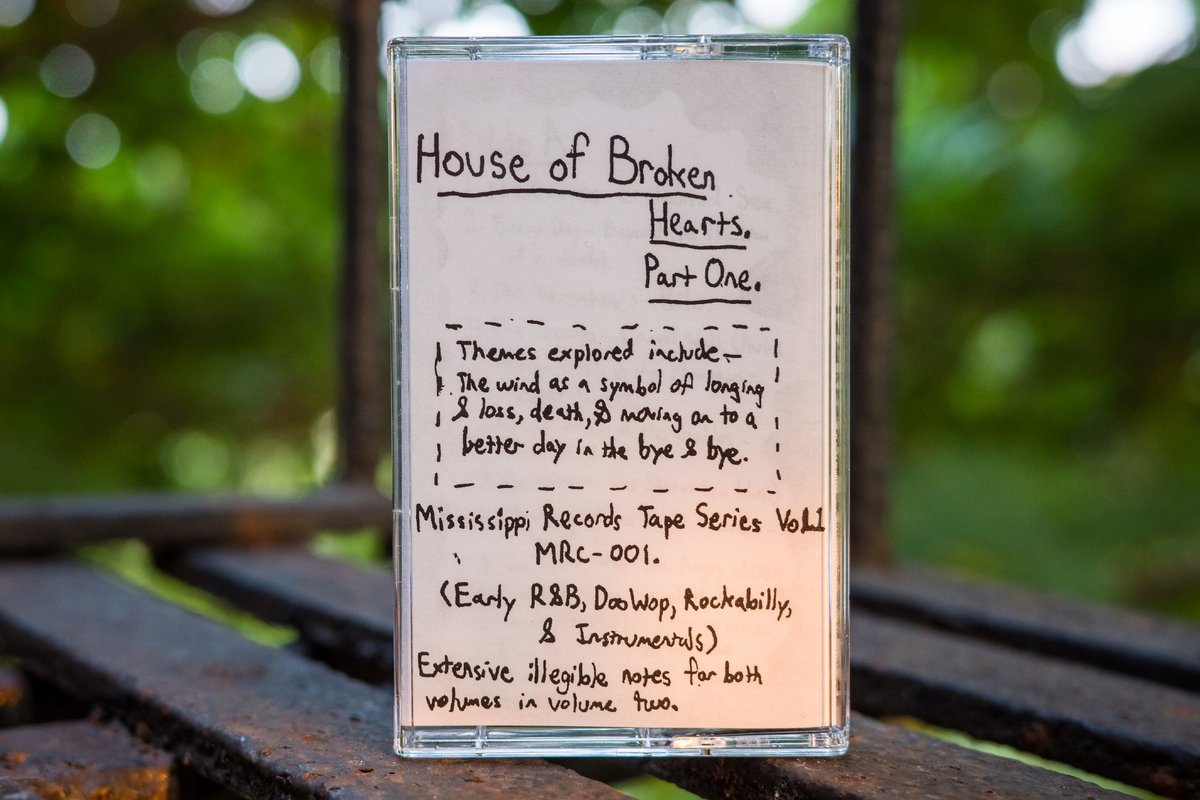 House of Broken
Hearts.
Part One.
Themes explored include—
The wind as a symbol of longing
& loss, death, & moving on to a
better day in the bye & bye.
Mississippi Records Tape Series Vol.1
MRC-001.
(Early R&B, DooWop, Rockabilly,
& Instrumentals)
Extensive illegible notes for both
volumes in volume two.